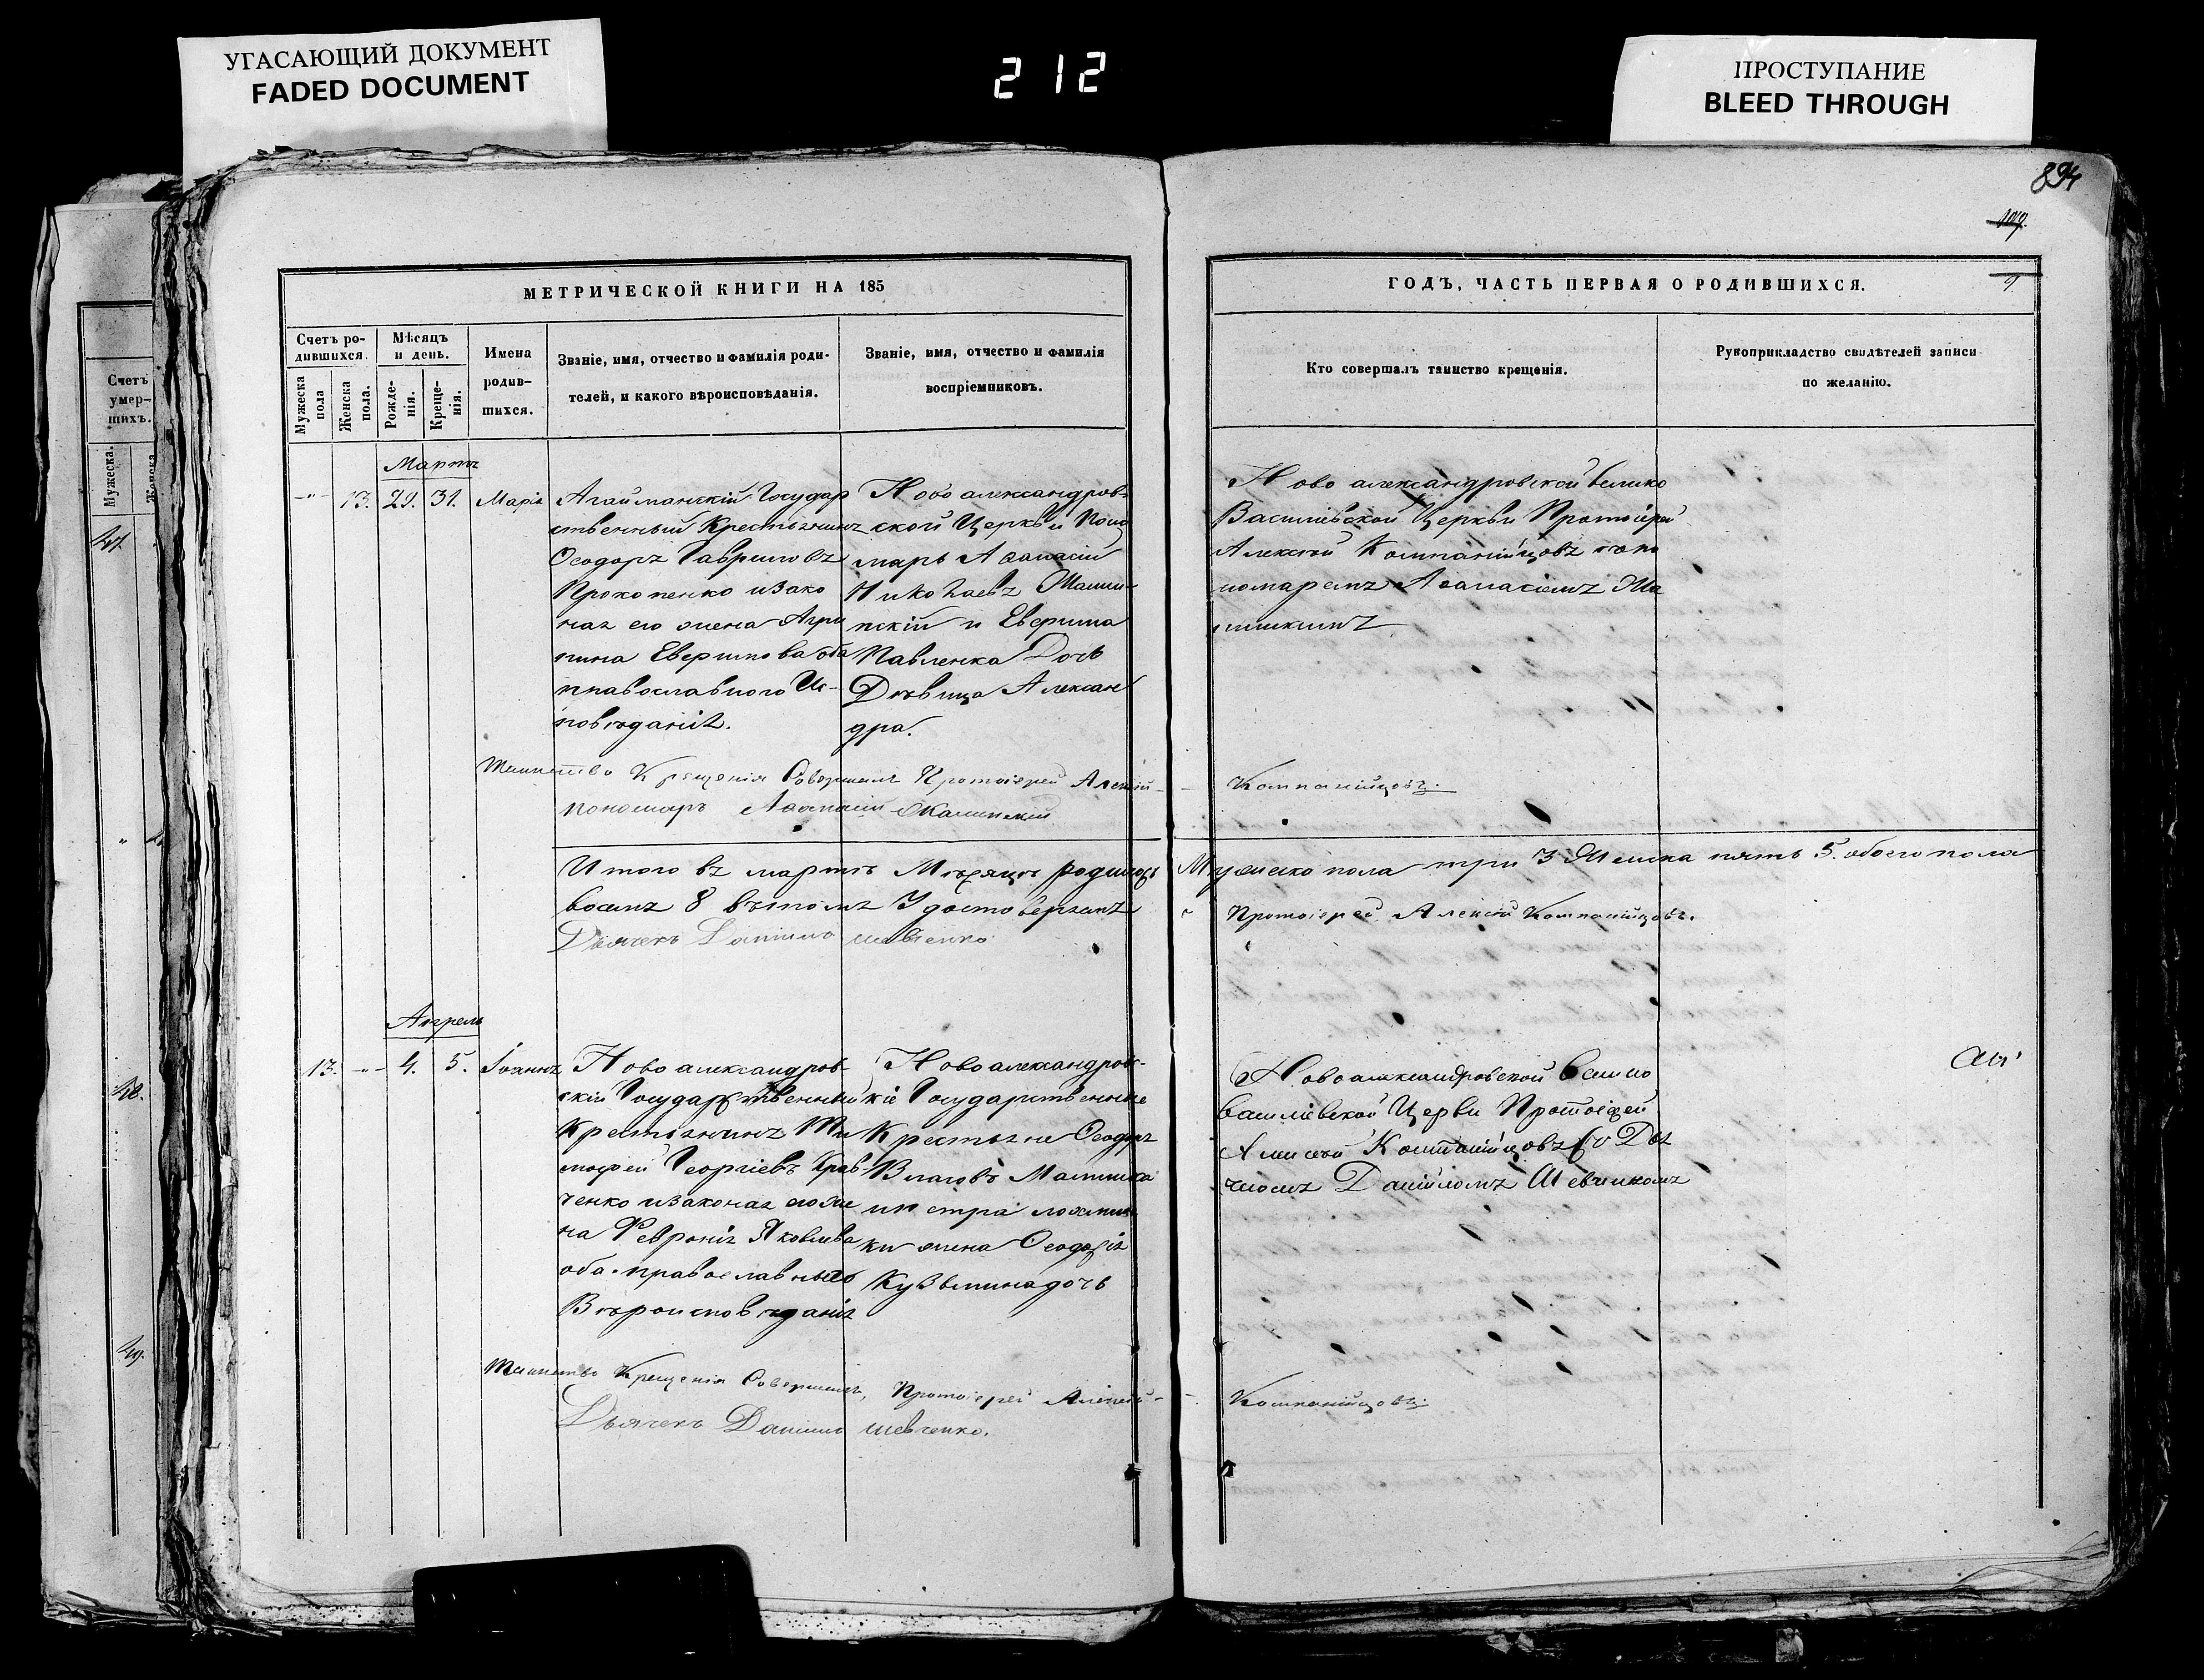 УГАСАЮЩИЙ ДОКУМЕНТ
FADED DOCUMENT
212
ПРОСТУПАНИЕ
BLEED THROUGH
894
9
МЕТРИЧЕСКОЙ КНИГИ НА 185
ГОДЪ, ЧАСТЬ ПЕРВАЯ О РОДИВШИХСЯ.
Счетъ ро-
дившихся.
Мужеска пола
Женска пола.
Мѣсяцъ
и день.
Рожде-
нія.
Креще-
нія.
Имена
родив-
шихся.
Званіе, имя, отчество и фамилія роди-
телей, и какого вѣроисповѣданія.
Званіе, имя, отчество и фамилія
воспріемниковъ.
Кто совершалъ таинство крещенія.
Рукоприкладство свидѣтелей записи
по желанію.
Счетъ
умер-
шихъ.
Мужеска.
Женска
Мартъ
13. 29. 31. Марія
Агайманскій Государ
ственный Крестьянинъ
Ѳеодоръ Гавриловъ
Прокопенко и зако
ная его жена Агри
пина
оба
православного Ис-
повѣданія.
Ново александров-
ской Церкви Поно
марь Аѳанасій
Николаевъ
и
Павленка Дочь
Дѣвица Алексан
дра.
Ново александровской Велико
Василіевской Церкви Протоіерей
Алексѣй Компанійцовъ с поно
номаремъ Аѳанасіемъ
Таинство Крещенія Совершалъ Протоіерей Алексій
Компанійцовъ.
пономарь Аѳанасій
Итого въ мартѣ Мѣсяцѣ родилось
Мужеско пола три 3. Женска пять 5. обоего пола
восемъ 8 въ томъ Удостоверяемъ
Протоіерей Алексій Компанійцовъ.
Дьячекъ Даніилъ Шевченко
Апрель
13. 4. 5. Іоаннъ
Ново александров-
скій Государственный
Крестьянинъ Ти
мофей Георгіевъ Крав-
ченко и законая его же
на Февронія Яковлева
оба православного
Вѣроисповѣданія
Ново александров-
кіе Государственные
Крестьяне Ѳеодоръ
Власовъ
жена Ѳеодосія
Кузьмина дочь
Ново александровской Велико
Василіевской Церкви Протоіерей
Алексѣй Компанійцовъ Со Дья
чкомъ Даніиломъ Шевченкомъ
Таинство Крещенія Совершалъ, Протоіерей Алексій
Компанійцовъ.
Дьячекъ Даніилъ Шевченко.